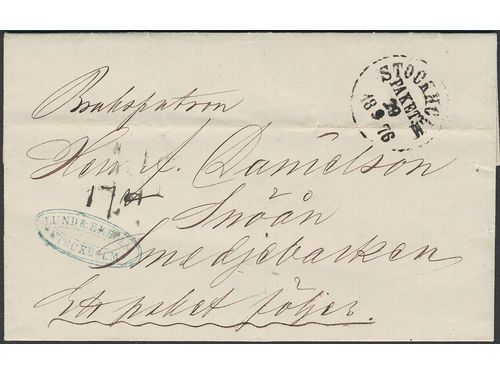 Brukspatron
Herr A. Danielson
Snöån
Smedjebacken
Ett paket följer.
STOCKHO
PAKET
29
18 9 76
LUND &
STOCKHOLM